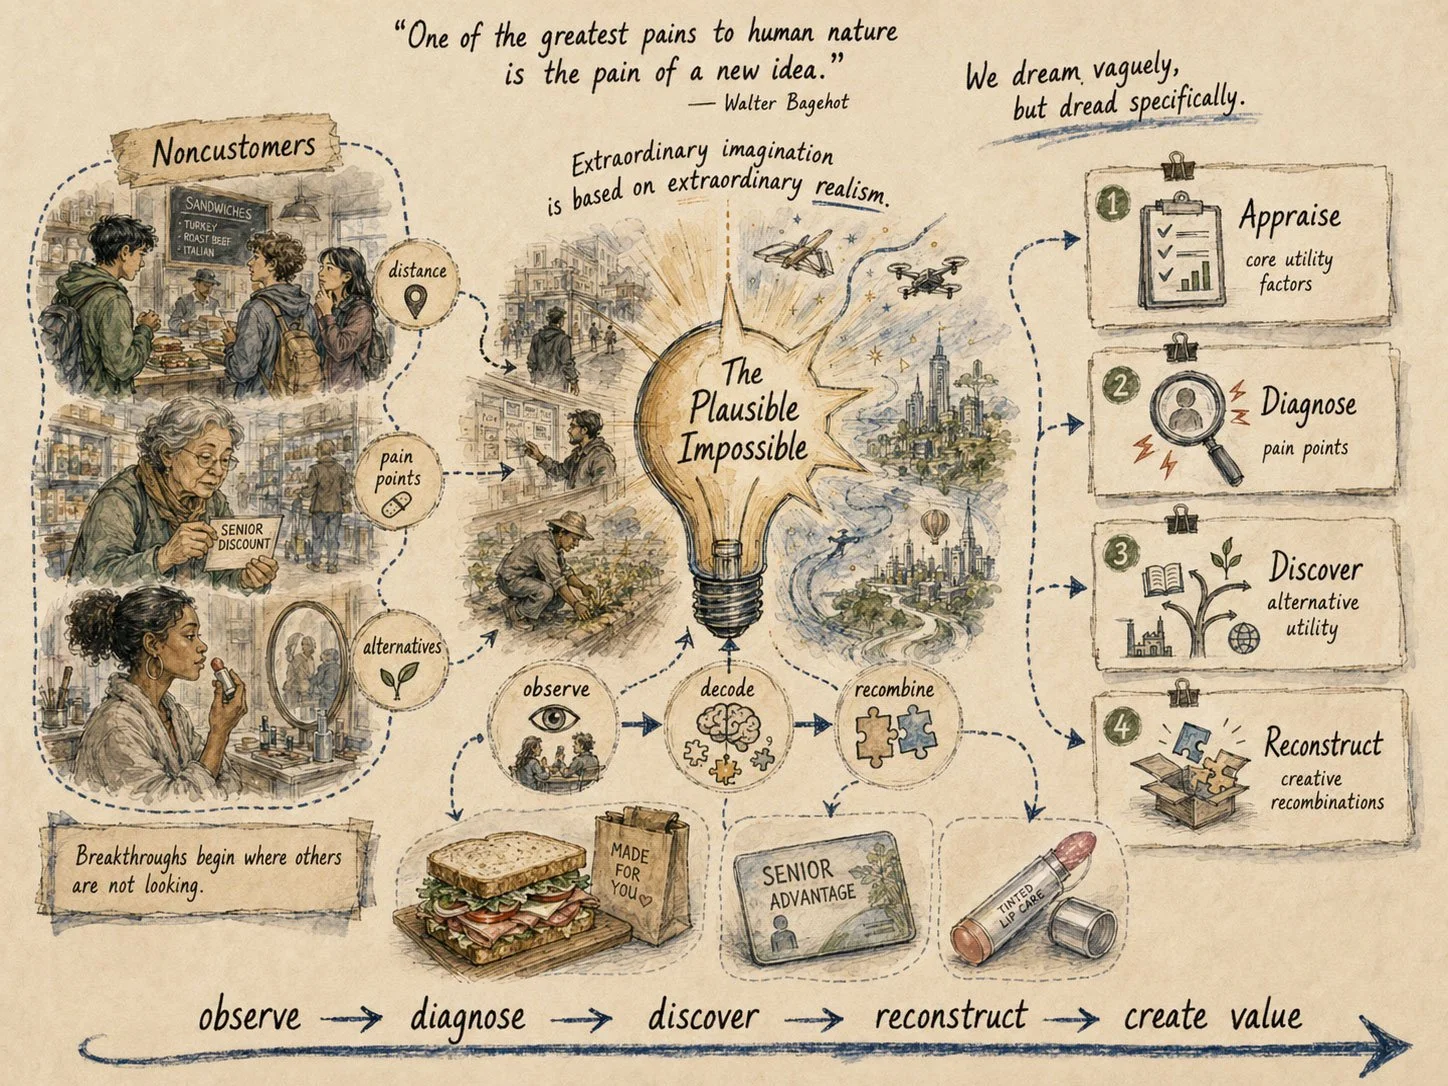 “One of the greatest pains to human nature
is the pain of a new idea.”
— Walter Bagehot
We dream vaguely,
but dread specifically.
Extraordinary imagination
is based on extraordinary realism.
Noncustomers
SANDWICHES
· TURKEY
ROAST BEEF
· ITALIAN
distance
SENIOR
DISCOUNT
pain
points
alternatives
Breakthroughs begin where others
are not looking.
The
Plausible
Impossible
observe
decode
recombine
MADE
FOR
YOU♡
SENIOR
ADVANTAGE
TINTED
LIP CARE
1
Appraise
core utility
factors
2
Diagnose
pain points
3
Discover
alternative
utility
4
Reconstruct
creative
recombinations
observe → diagnose → discover → reconstruct → create value